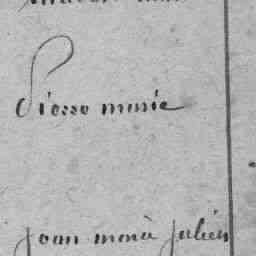 Pierre marie
jean marie julien